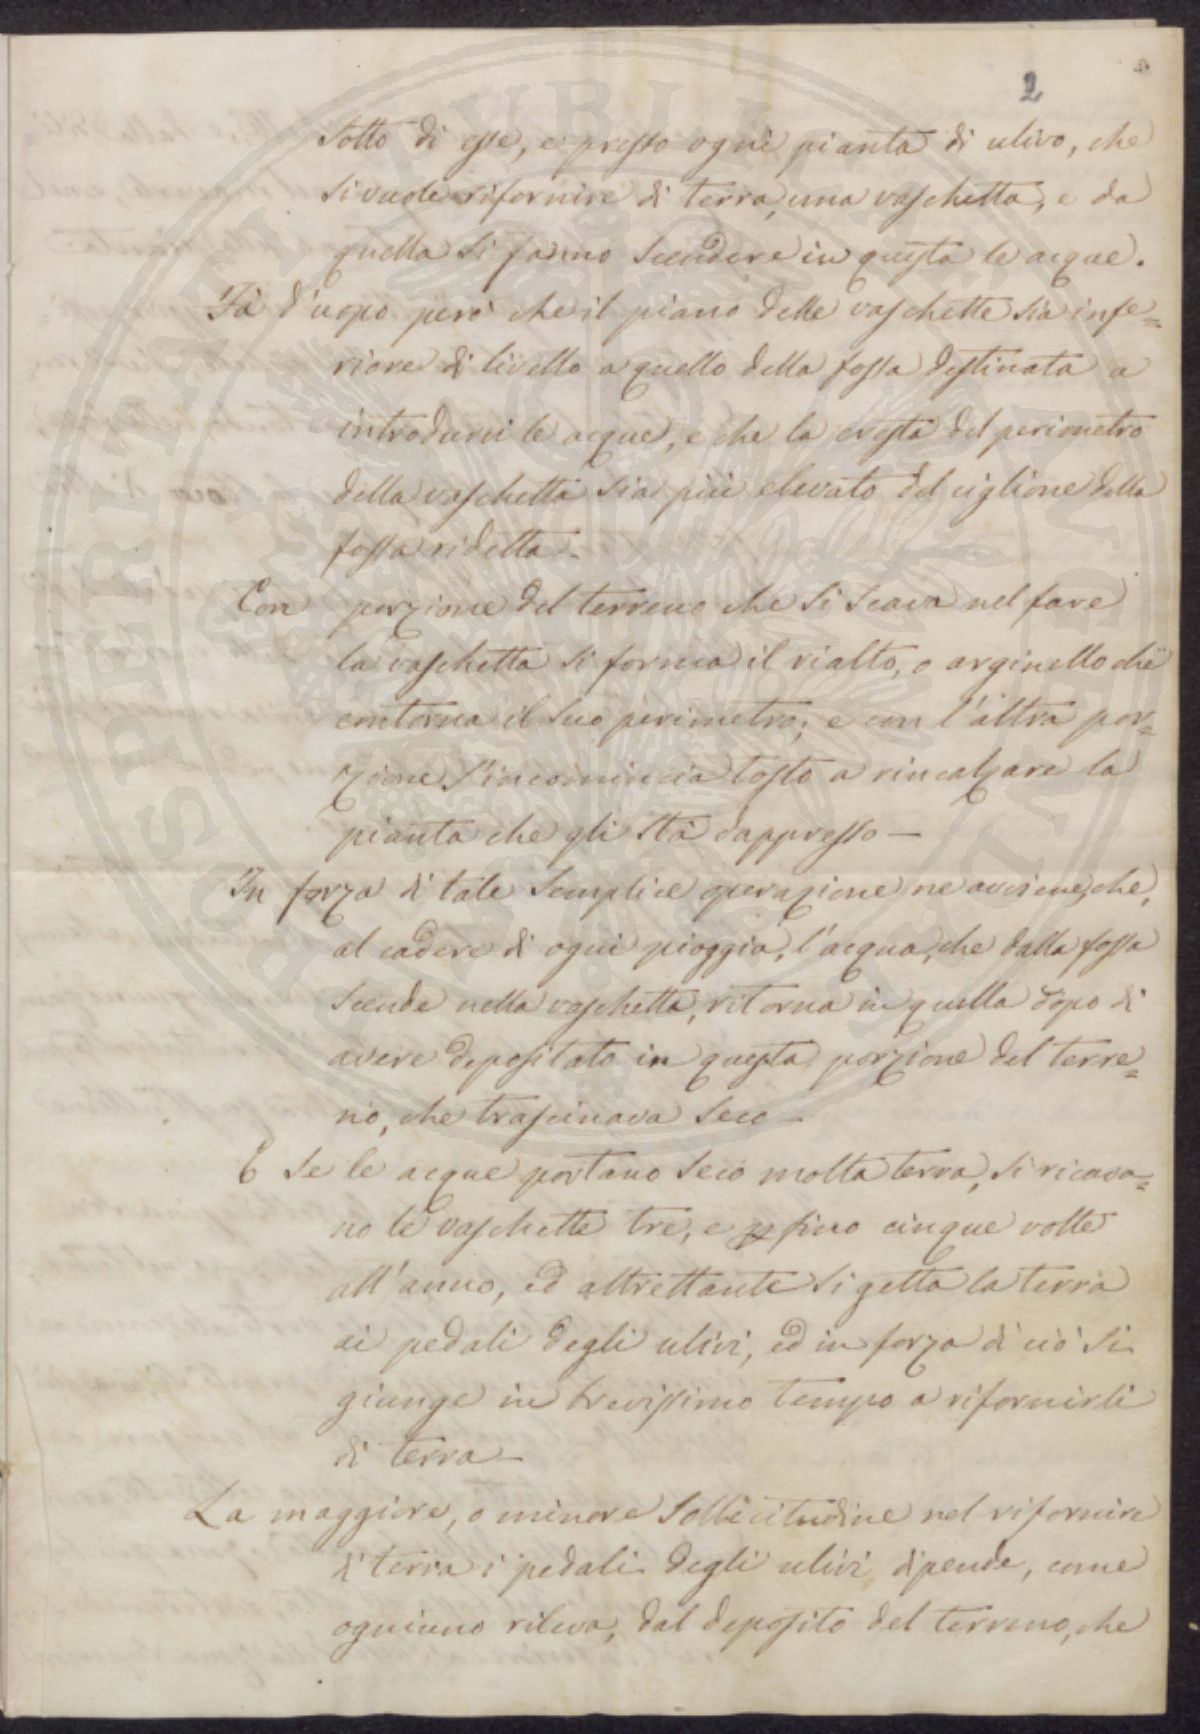 2
sotto di esse, e presso ogni pianta di ulivo, che
si vuole rifornire di terra, una vaschetta, e da
quella si fanno scendere in questa le acque.
Fà d'uopo però che il piano delle vaschette sia infe=
riore di livello a quello della fossa destinata a
introdurvi le acque, e che la cresta del perimetro
della vaschetta sia più elevato del ciglione della
fossa ridetta.
Con porzione del terreno che si scava nel fare
la vaschetta si forma il rialto, o arginello che
contorna il suo perimetro; e con l'altra por=
zione s'incomincia tosto a rincalzare la
pianta che gli stà dappresso —
In forza di tale semplice operazione ne avviene, che,
al cadere di ogni pioggia, l'acqua, che dalla fossa
scende nella vaschetta, ritorna in quella dopo di
avere depositato in questa porzione del terre=
no, che trascinava seco —
E se le acque portano seco molta terra, si ricava=
no le vaschette tre, e fino cinque volte
all'anno, ed altrettante si getta la terra
ai pedali degli ulivi, ed in forza di ciò si
giunge in brevissimo tempo a rifornirli
di terra —
La maggiore, o minore sollecitudine nel rifornire
di terra i pedali degli ulivi dipende, come
ogniuno rileva, dal deposito del terreno, che
PROSPERITATI PUBLICAE